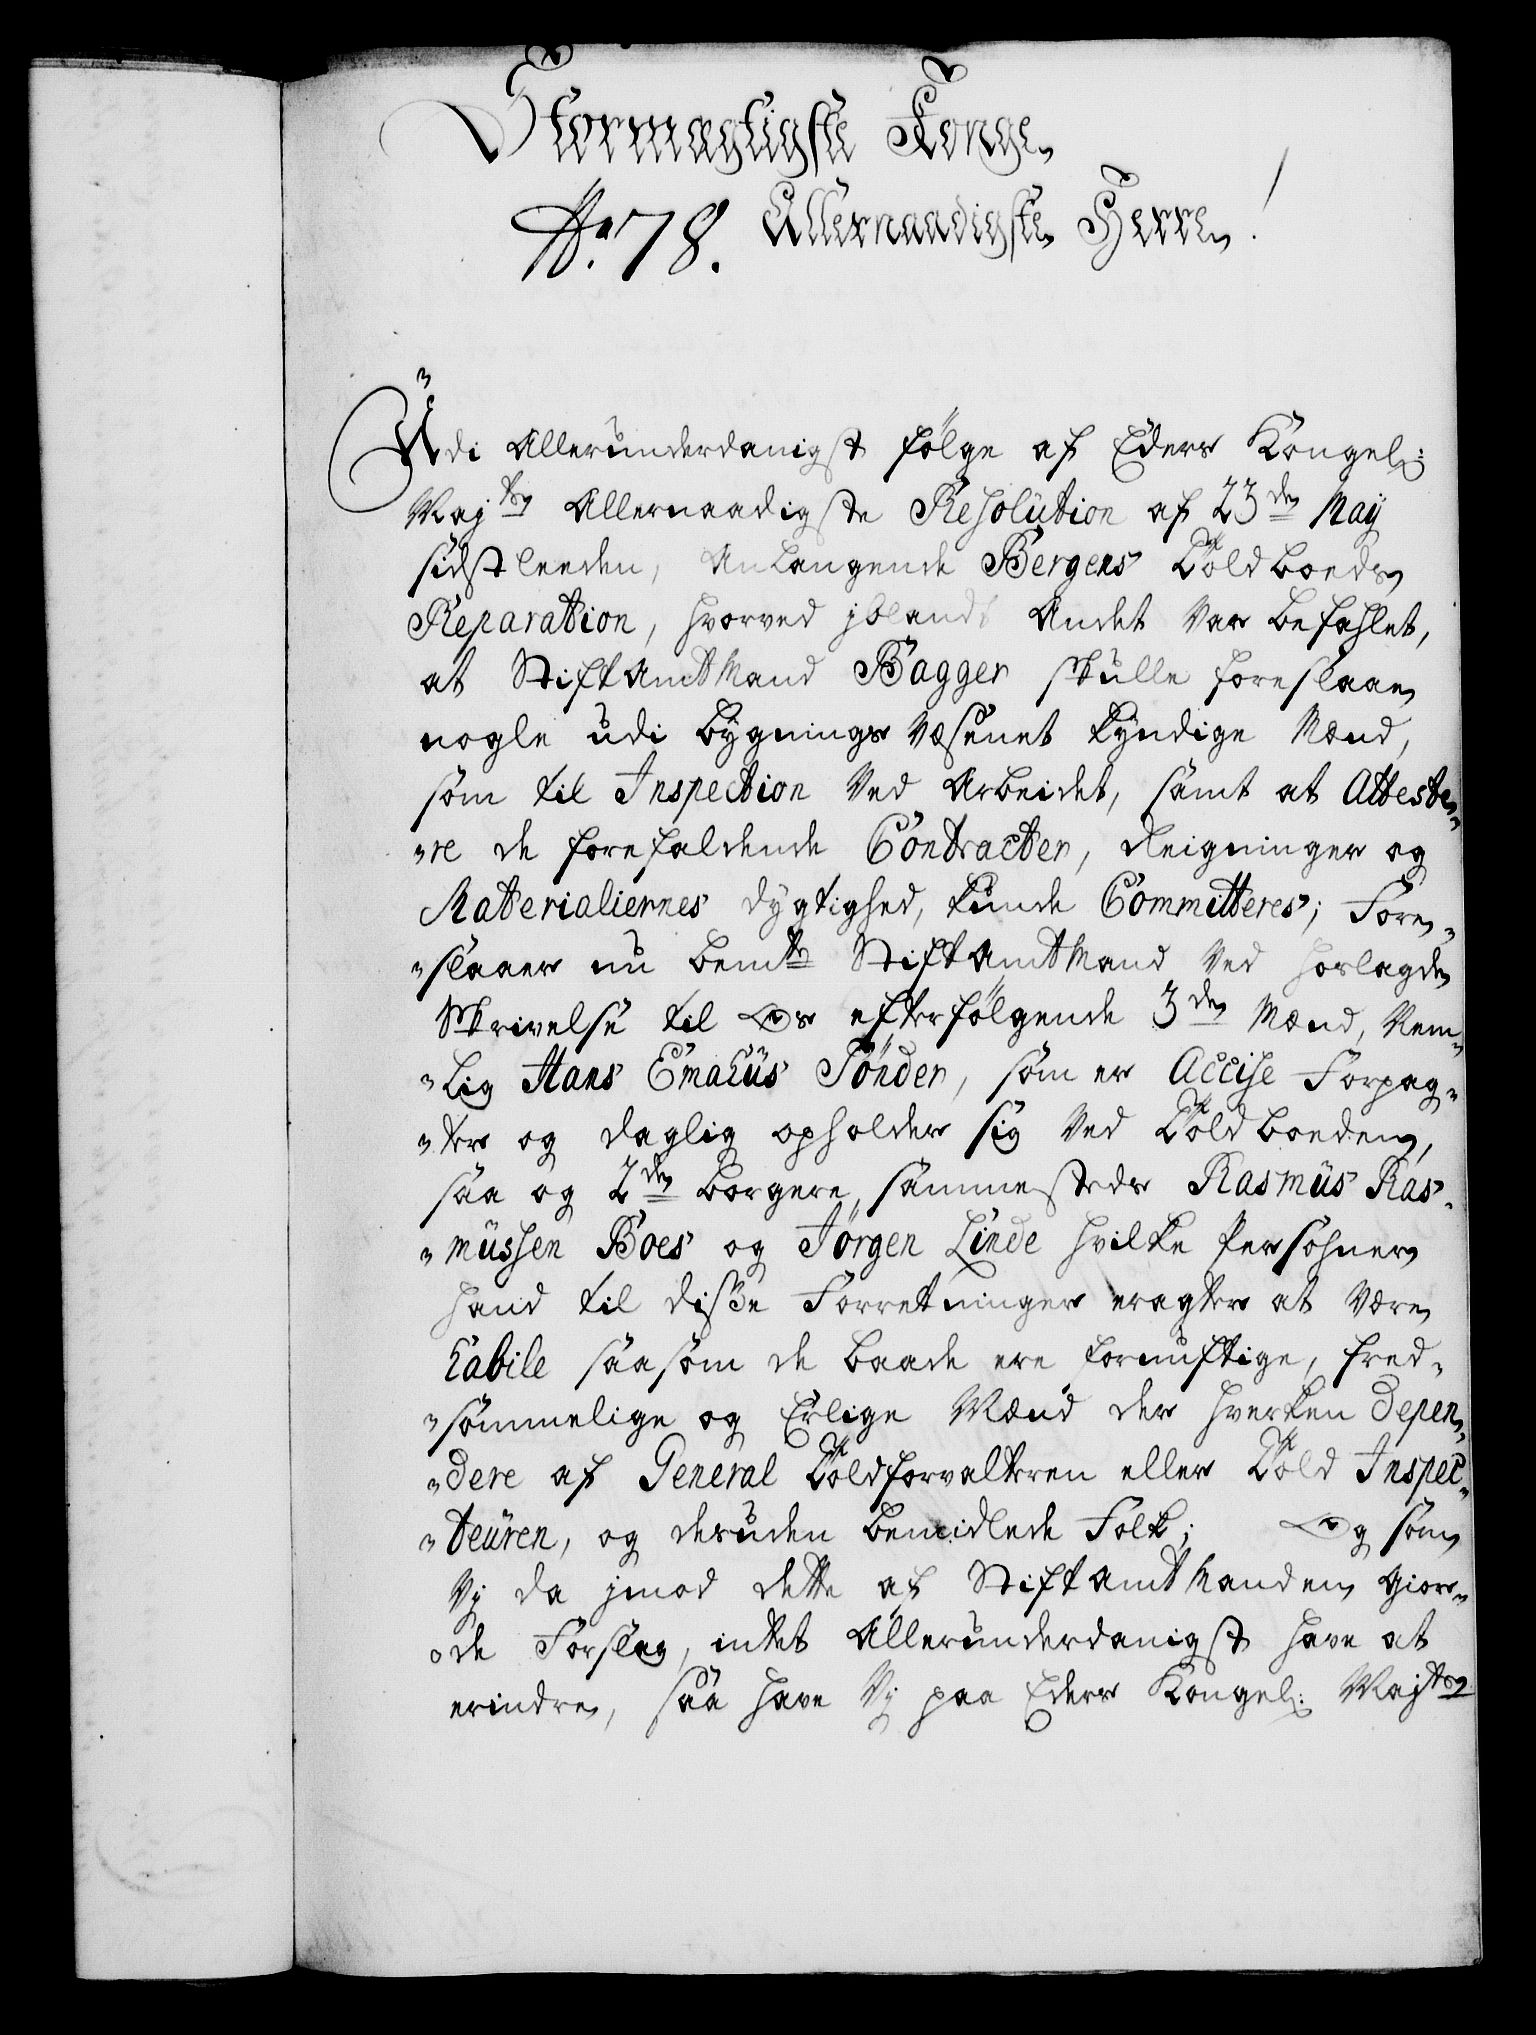 Stormægtigste Konge,
No. 78. Allernaadigste Herre!
Udi Allerunderdanigst følge af Eders Kongel:
Majts Allernaadigste Resolution af 23de May
sidstleeden, Anlangende Bergens Toldboeds
Reparation, hvorved jblandt Andet var befahlet,
at StiftAmtMand Bagger skulle foreslaae
nogle udi bygnings Væsenet kyndige Mænd,
som til Inspection ved Arbeidet, samt at Atteste-
-re de forefaldende Contracter, Leigninger og
Materialiernes dygtighed, kunde Committeres; Fore-
-slaaer nu bemte StiftAmtMand ved hoslagde
Skrivelse til Os efterfølgende 3de Mænd, Nem-
-lig Hans Emahüs Tönder, som er Accise Forpag-
-ter og daglig opholder sig ved Toldboeden,
saa og 2de borgere, sammesteds Rasmüs Ras-
-müssen Boes og Jörgen Linde hvilke Persohner
hand til disse Forretninger eragter at være
habile saasom de baade ere fornuftige, fred-
-sommelige og Erlige Mænd der hverken depen-
-dere af General Toldforvalteren eller Told Inspec-
-teüren, og desuden bemidlede Folk; Og som
Vj da jmod dette af StiftAmtManden gior-
-de Forslag, intet Allerunderdanigst have at
erindre, saa have Vj paa Eders Kongel: Majts